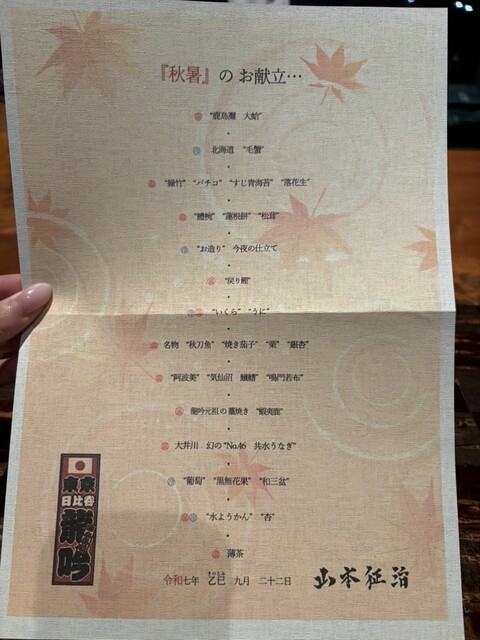 『秋暑』の お献立…
“鹿島灘 大蛤”
北海道 “毛蟹”
“緑竹” “バチコ” “すじ青海苔” “落花生”
“鱧椀” “蓮根餅” “松茸”
“お造り” 今夜の仕立て
“戻り鰹”
“いくら” “うに”
名物 “秋刀魚” “焼き茄子” “栗” “銀杏”
“阿波美” “気仙沼 鱶鰭” “鳴門若布”
龍吟元祖の藁焼き “蝦夷鹿”
大井川 幻の“No.46 共水うなぎ”
“葡萄” “黒無花果” “和三盆”
“水ようかん” “杏”
薄茶
令和七年 乙巳 九月 二十二日
きのとみ
山本征治
東京
日比谷
龍吟